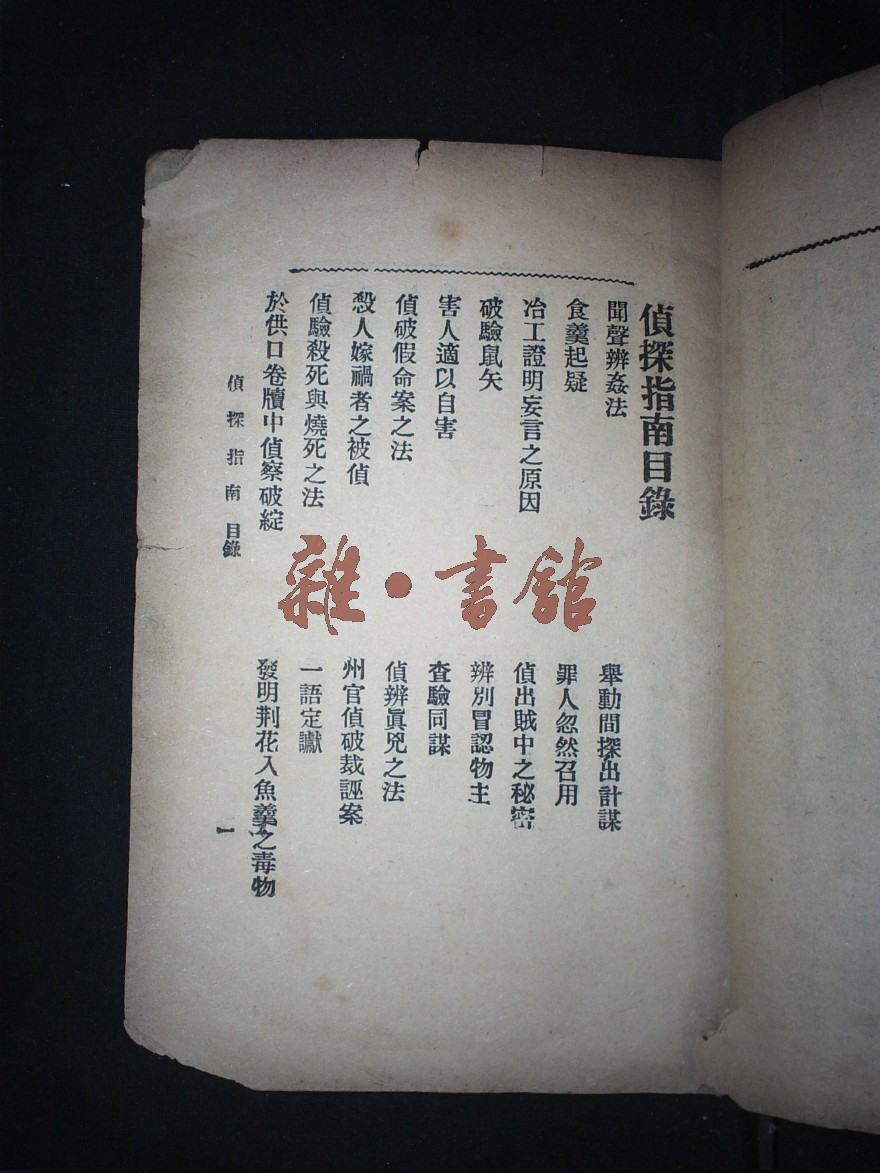 偵探指南目錄
聞聲辨姦法
舉動間探出計謀
食羹起疑
罪人忽然召用
冶工證明妄言之原因
偵出賊中之秘密
破驗鼠矢
辨別冒認物主
害人適以自害
查驗同謀
偵破假命案之法
偵辨眞兇之法
殺人嫁禍者之被偵
州官偵破裁誣案
偵驗殺死與燒死之法
一語定讞
於供口卷牘中偵察破綻
發明荆花入魚羹之毒物
偵探指南 目錄
一
雜·書館